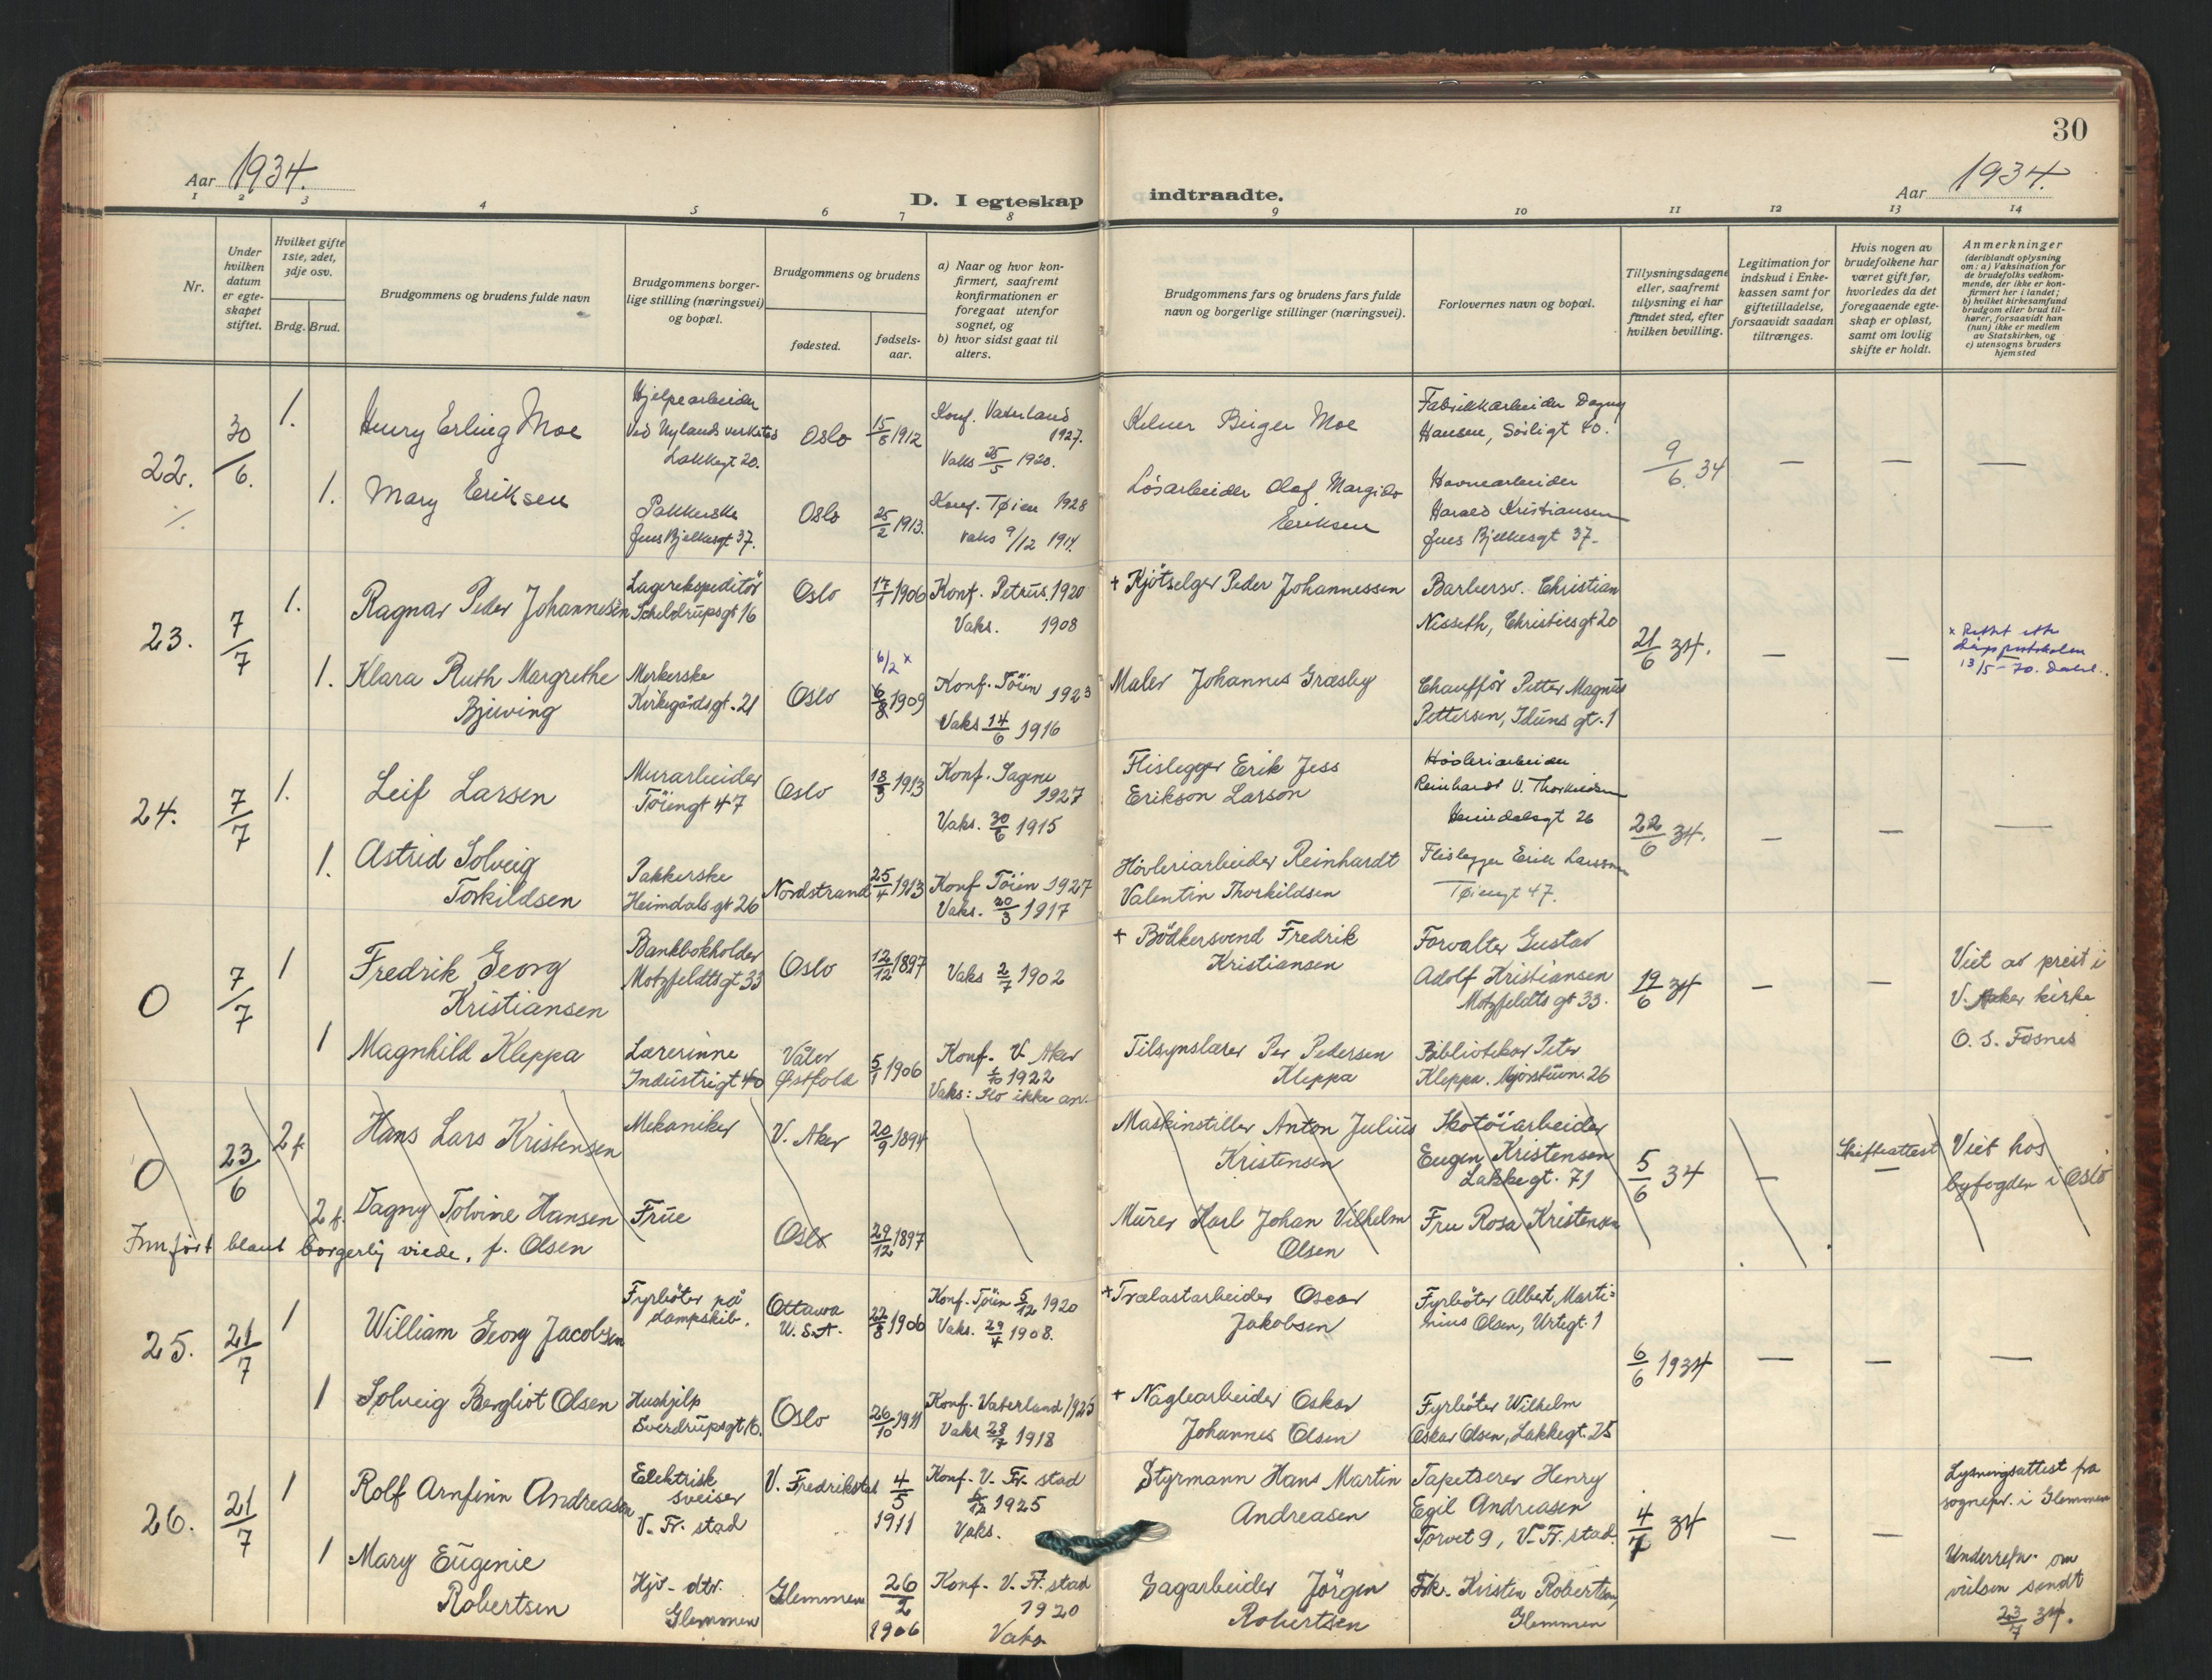 30
Aar 1934.
D. I egteskap indtraadte.
Aar 1934.
1 2 3 4 5 6 7 8 9 10 11 12 13 14
Nr.
Under hvilken datum er egteskapet stiftet.
Hvilket gifte 1ste, 2det, 3dje osv.
Brdg. Brud.
Brudgommens og brudens fulde navn
Brudgommens borgerlige stilling (næringsvei) og bopæl.
Brudgommens og brudens
fødested.
fødselsaar.
a) Naar og hvor konfirmert, saafremt konfirmationen er foregaat utenfor sognet, og
b) hvor sidst gaat til alters.
Brudgommens fars og brudens fars fulde navn og borgerlige stillinger (næringsvei).
Forlovernes navn og bopæl.
Tillysningsdagene eller, saafremt tillysning ei har fundet sted, efter hvilken bevilling.
Legitimation for indskud i Enkekassen samt for giftetilladelse, forsaavidt saadan tiltrænges.
Hvis nogen av brudefolkene har været gift før, hvorledes da det foregaaende egteskap er opløst, samt om lovlig skifte er holdt.
Anmerkninger
(deriblandt oplysning om: a) Vaksination for de brudefolks vedkommende, der ikke er konfirmert her i landet;
b) hvilket kirkesamfund brudgom eller brud tilhører, forsaavidt han (hun) ikke er medlem av Statskirken, og
c) utensogns bruders hjemsted
22. 30/6. 1.
Henry Erling Moe
Hjelpearbeider
ved Nylands verksted
Lakkegt 20.
Oslo
15/8 1912
Konf. Vaterland
1927.
Vaks 25/5 1920.
Kelner Birger Moe
Fabrikkarbeider Dagny
Hansen, Sørligt 40.
9/6. 34
— — —
1.
Mary Eriksen
Pakkerske
Jens Bjelkesgt 37.
Oslo
25/2 1913.
Konf. Tøien 1928
vaks 9/12 1914.
Løsarbeider Olaf Margido
Eriksen
Havnearbeider
Harald Kristiansen
Jens Bjelkesgt 37.
23. 7/7 1.
Ragnar Peder Johannesen
Lagerekspeditör
Scheldrupsgt 16
Oslo
17/1 1906
Konf. Petrus. 1920
Vaks. 1908
+ Kjötselger Peder Johannessen
Barbersv. Christian
Nisseth, Christiesgt 20
21/6 34.
— —
x Rettet efter
13/5-70. Dahl.
1.
Klara Ruth Margrethe
Bjerving
Merkerske
Kirkegårdsgt. 21
Oslo
6/2 x
6/8 1909
Konf. Töien 1923
Vaks 14/6 1916
Maler Johannes Græsby
Chaufför Petter Magnus
Pettersen, Iduns gt. 1
24. 7/7 1.
Leif Larsen
Murarbeider
Töiengt 47
Oslo
18/3 1913
Konf. Sagene
1927
Vaks. 30/6 1915
Flislegger Erik Jess
Erikson Larson
Høvleriarbeider
Reinhardt V. Thorkildsen
Heimdalsgt 26
22/6 34.
— — —
1.
Astrid Solveig
Torkildsen
Pakkerske
Heimdalsgt 26
Nordstrand
25/4 1913
Konf Töien 1927
Vaks. 20/3 1917
Hövleriarbeider Reinhardt
Valentin Thorkildsen
Flislegger Erik Larsson
Tøiengt 47.
0 7/7 1
Fredrik Georg
Kristiansen
Bankbokholder
Motzfeldtsgt 33
Oslo
12/12 1897
Vaks 2/7 1902
+ Bödkersvend Fredrik
Kristiansen
Forvalter Gustav
Adolf Kristiansen
Motzfeldts gt 33.
19/6 34
— —
Viet av prest i
V. Aker kirke
O. S. Fosnes
1
Magnhild Kleppa
Lærerinne
Industrigt 40
Våler
Østfold
5/1 1906
Konf. V. Aker
1/10 1922
Vaks: Flo ikke an.
Tilsynslærer Per Pedersen
Kleppa
Bibliotekar Peter
Kleppa. Majorstuvn. 26
0 23/6 2 f.
Hans Lars Kristensen
Mekaniker
V. Aker
20/9 1894
Maskinstiller Anton Julius
Kristensen
Skotöiarbeider
Eugen Kristensen
Lakkegt. 71
5/6 34
—
Skifteattest
—
Viet hos
byfogden i Oslo
2 f.
Dagny Tolvine Hansen
Frue
Oslo
29/12 1897
Murer Karl Johan Vilhelm
Olsen
Fru Rosa Kristensen
Innført blant borgerlig viede. f. Olsen
25. 21/7 1
William Georg Jacobsen
Fyrböter på
dampskib.
Ottawa
U.S.A.
22/8 1906
Konf. Töien 5/12 1920
Vaks. 29/4 1908.
+ Trælastarbeider Oscar
Jakobsen
Fyrböter Albert Marti=
nius Olsen, Urtegt. 1
6/6 1934
— — —
1
Solveig Bergliot Olsen
Hushjelp
Sverdrupsgt 16.
Oslo
26/10 1911
Konf. Vaterland 1925
Vaks 23/7 1918
+ Naglearbeider Oskar
Johannes Olsen
Fyrböter Wilhelm
Oskar Olsen, Lakkegt. 25
26. 21/7 1
Rolf Arnfinn Andreasen
Elektrisk
sveiser
V. Fr. stad
V. Fredrikstad
4/5 1911
Konf. V. Fr. stad
6/12 1925
Vaks.
Styrmann Hans Martin
Andreasen
Tapetserer Henry
Egil Andreasen
Torvet 9, V. Fr. stad.
4/7 34
— —
Lysningsattest fra
sognepr. i Glemmen
1
Mary Eugenie
Robertsen
Hjv. dtr.
Glemmen
Glemmen
26/2 1906
Konf. V. Fr. stad
1920
Vaks.
Sagarbeider Jörgen
Robertsen
Frk. Kirsten Robertsen,
Glemmen
Underretn. om
vielsen sendt
23/7 34.